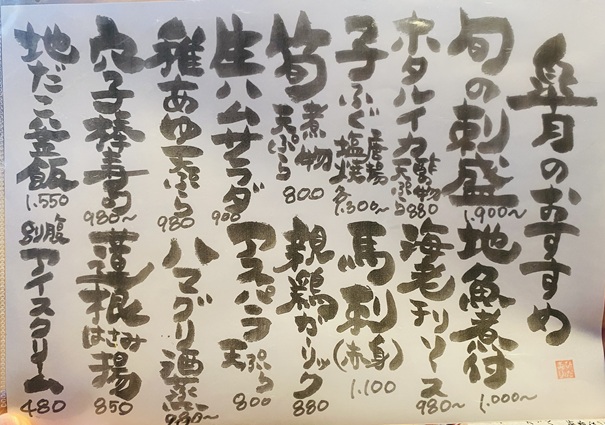 皐月のおすすめ
旬の刺盛
1.900〜
地魚煮付
1.000〜
ホタルイカ 酢の物 天ぷら
880
海老チリソース
980〜
子ふぐ 唐揚 塩焼
各1.300〜
馬刺(赤身)
1.100
筍 煮物 天ぷら
800
親鶏ガーリック
880
生ハムサラダ
900
アスパラ天ぷら
800
稚あゆ天ぷら
980
ハマグリ酒蒸
980〜
穴子棒寿司
980〜
蓮根はさみ揚
850
地だこ釜飯
1.550
別腹 アイスクリーム
480